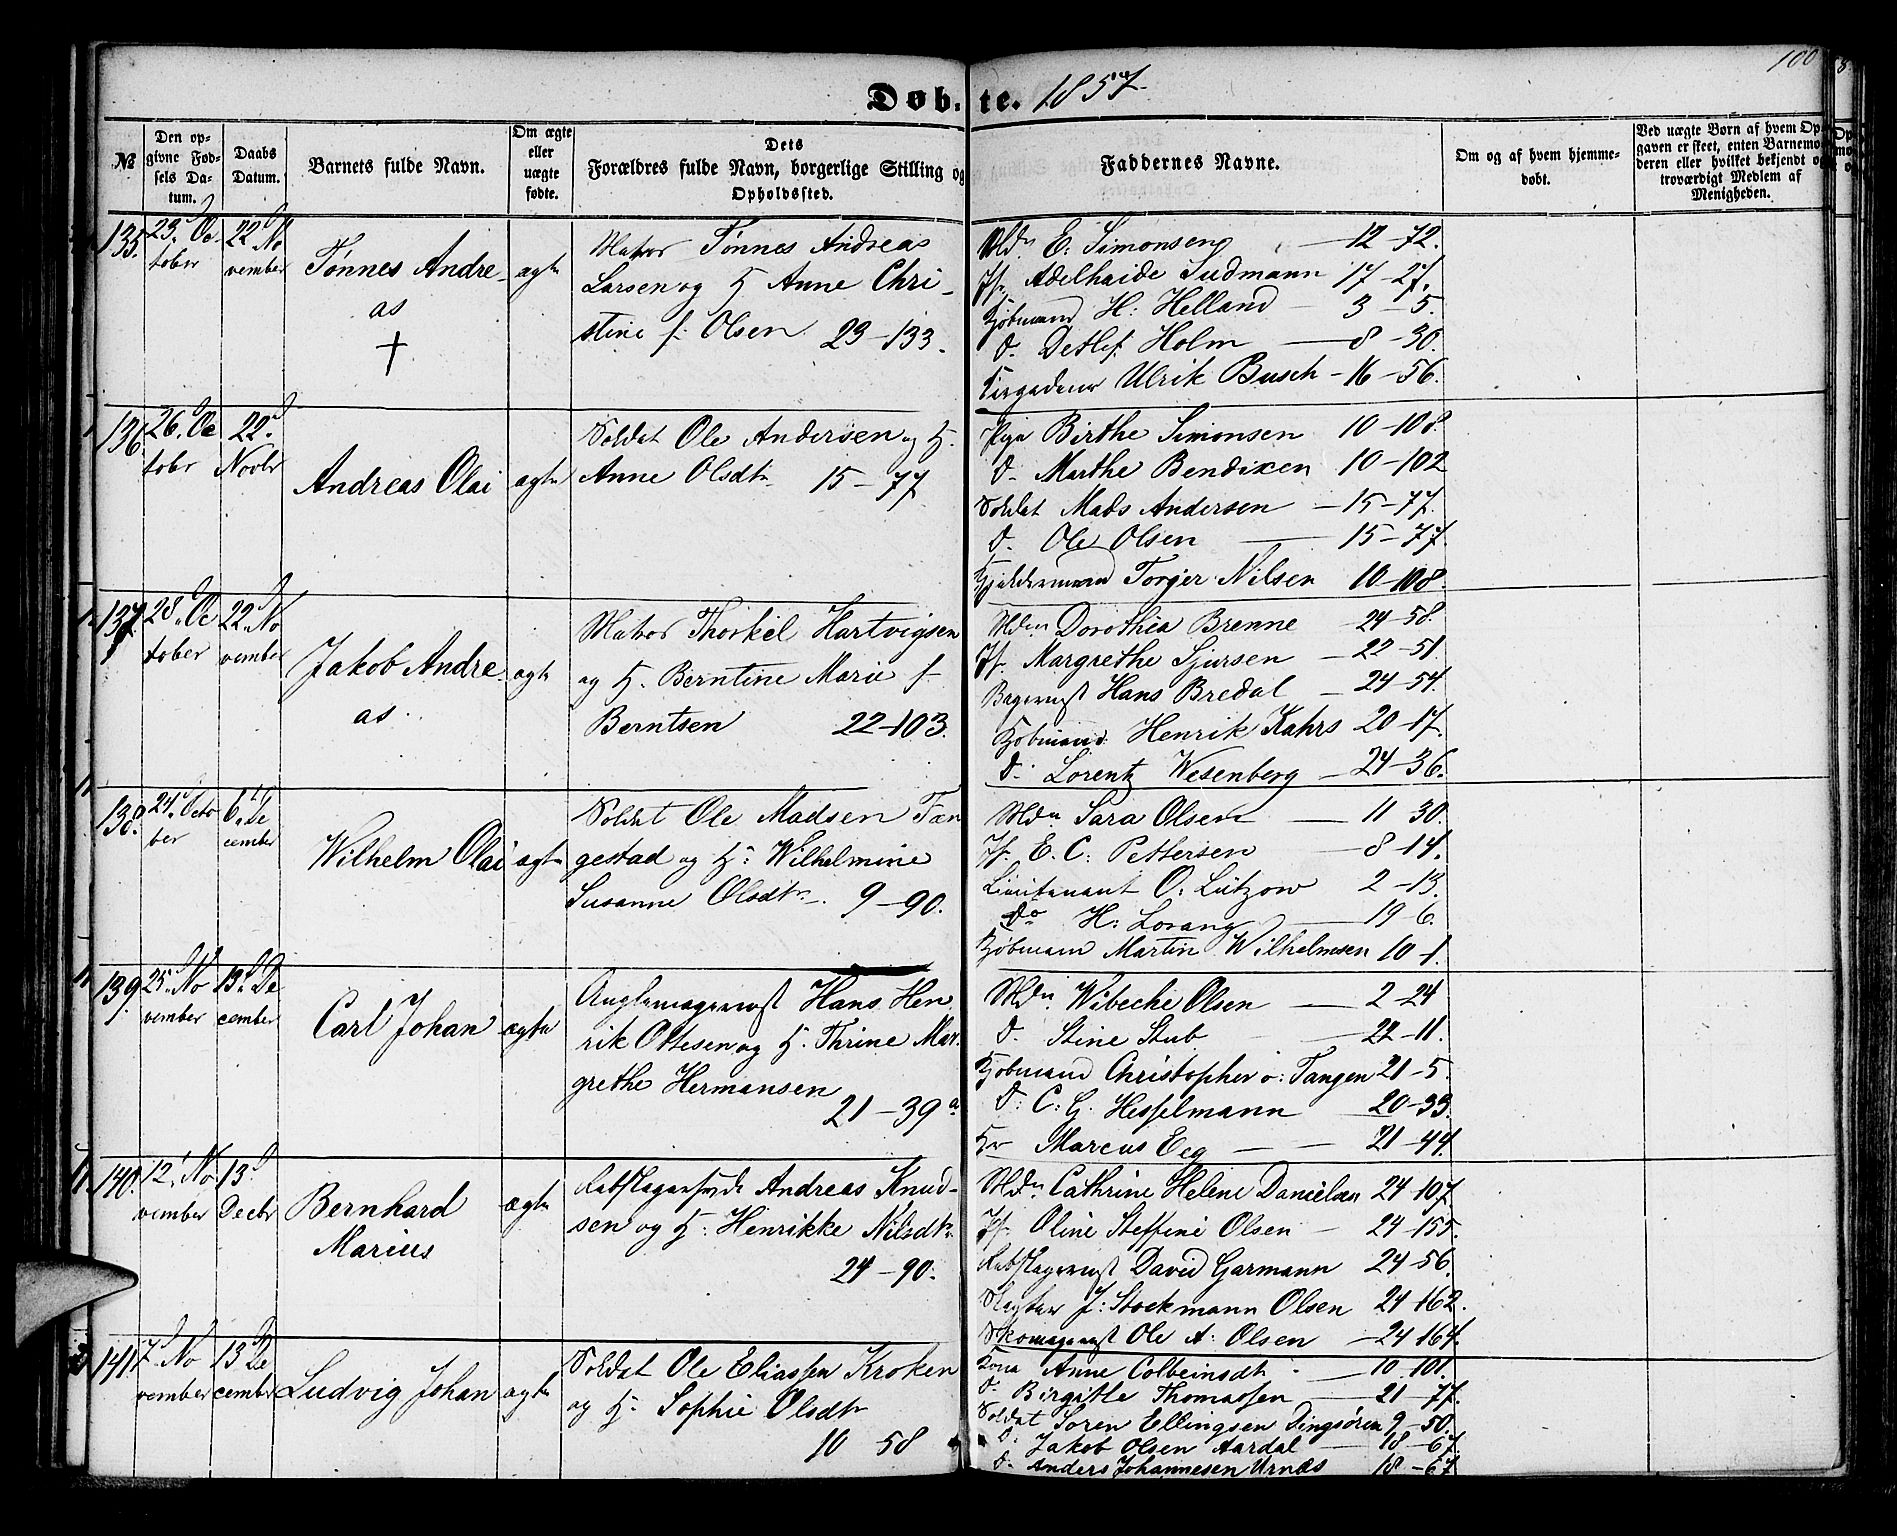 100
Døb-te. 1857.
№
Den opgivne Fødsels Datum.
Daabs Datum.
Barnets fulde Navn.
Om ægte eller uægte fødte.
Dets Forældres fulde Navn, borgerlige Stilling og Opholdssted.
Faddernes Navne.
Om og af hvem hjemmedøbt.
Ved uægte Børn af hvem Opgaven er skeet, enten Barnemoderen eller hvilket bekjendt og troværdigt Medlem af Menigheden.
135.
23. Oc-
tober
22 No
vember
Tønnes Andre-
as
†
ægte
Matros Tønnes Andreas
Larsen og H. Anne Chri-
stine f. Olsen 23-133.
Mdm E. Simonsen 12-72.
Jf. Adelhaide Sudmann 17-27.
Kjøbmand H: Helland 3-5.
d. Detlef Holm 8-30.
Ulrik Busch 16-56.
136.
26. Oc
tobr
22.
Novbr
Andreas Olai
ægte
Soldat Ole Andersen og H.
Anne Olsdtr 15-77
Pige Birthe Simonsen 10-108.
d. Marthe Bendixen 10-102
Soldat Mads Andersen 15-77.
d. Ole Olsen 15-77.
Torger Nilsen 10-108.
137.
28. Oc
tober
22. No
vember
Jakob Andre
as.
ægte
Matros Thorkel Hartvigsen
og H. Berntine Marie f.
Berntsen 22-103.
Mdm Dorothea Brenne 24-58.
Jf. Margrethe Sjursen 22-51
Bagersvst Hans Bredal 24-54.
Kjøbmand Henrik Kahrs 20-17.
d. Lorentz Wesenberg 24-36.
138.
24. Octo
ber
6. De
cember
Wilhelm Olai
ægte
Soldat Ole Madsen Tan
gestad og H: Wilhelmine
Susanne Olsdtr. 9-90.
Mdm Sara Olsen 11 30.
Jf. E. C. Pettersen 8-14.
Lieutenant O: Lützow 2-13.
do H: Lorang 19-6.
Kjøbmand Martin Wilhelmsen 10-1.
139.
25. No
vember
13. De
cember
Carl Johan
ægte
Hans Hen
rik Ottesen og H. Thrine Mar-
grethe Hermansen
21-39 a
Mdm Wibeche Olsen 2-24
d. Stine Stub 22-11.
Kjøbmand Christopher o: Tangen 21-5.
d: C: G. Hesselmann 20-33.
Hr Marcus Eeg 21-44.
140.
12. No
vember
13.
Decbr
Bernhard
Marius
ægte
Andreas Knud-
sen og H: Henrikke Nilsdtr.
24-90.
Mdm Cathrine Helene Danielsen 24-107
Jf. Oline Steffine Olsen 24-155.
Rebslagersvst David Garmann 24-56.
Slagter J: Stockmann Olsen 24-162.
Skomagersvst Ole A: Olsen 24-164.
141.
7. No
vember
13 De
cember
Ludvig Johan
ægte
Soldat Ole Eliassen Kroken
og H. Sophie Olsdtr
10 58
Kona Anne Colbeinsdtr 10-101.
d. Birgitte Thomassen 21-77.
Soldat Soren Ellingsen Dingsören 9-50.
d. Jakob Olsen Aardal 18-67.
d. Anders Johannesen Urnæs 18-67